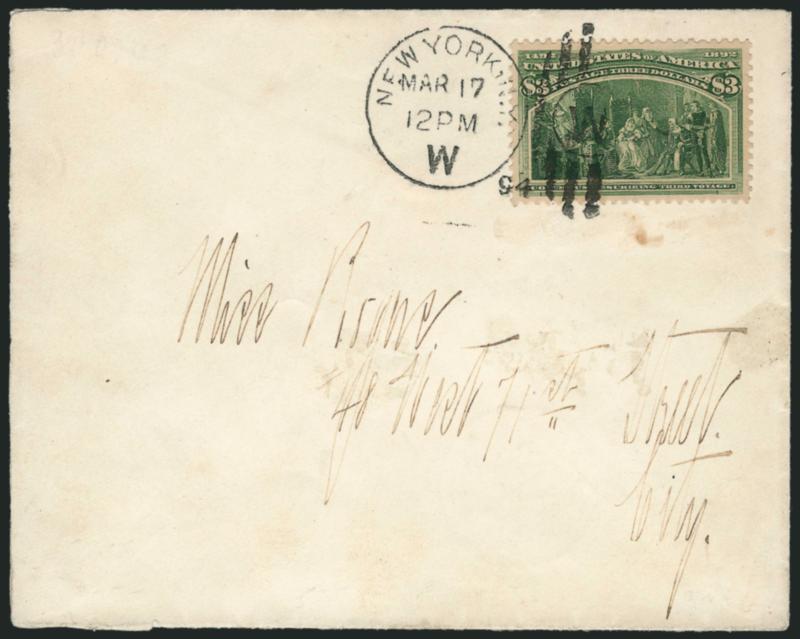 NEW YORK, N.Y.
MAR 17
12 PM
W
94
1492 1892
UNITED STATES OF AMERICA
POSTAGE THREE DOLLARS
$3 $3
W
COLUMBUS DESCRIBING THIRD VOYAGE
Miss
40 West 71st Street.
City.